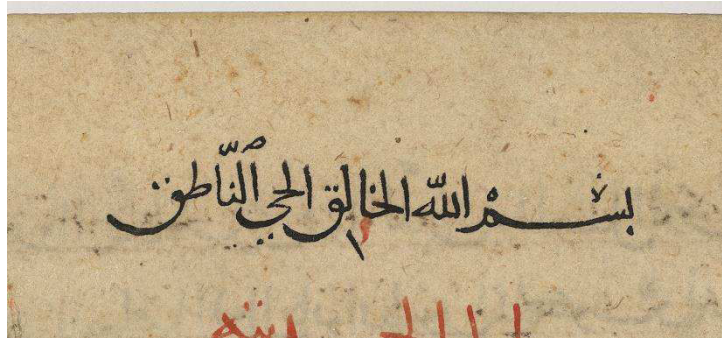 بسم الله الخالق الحي الناطق